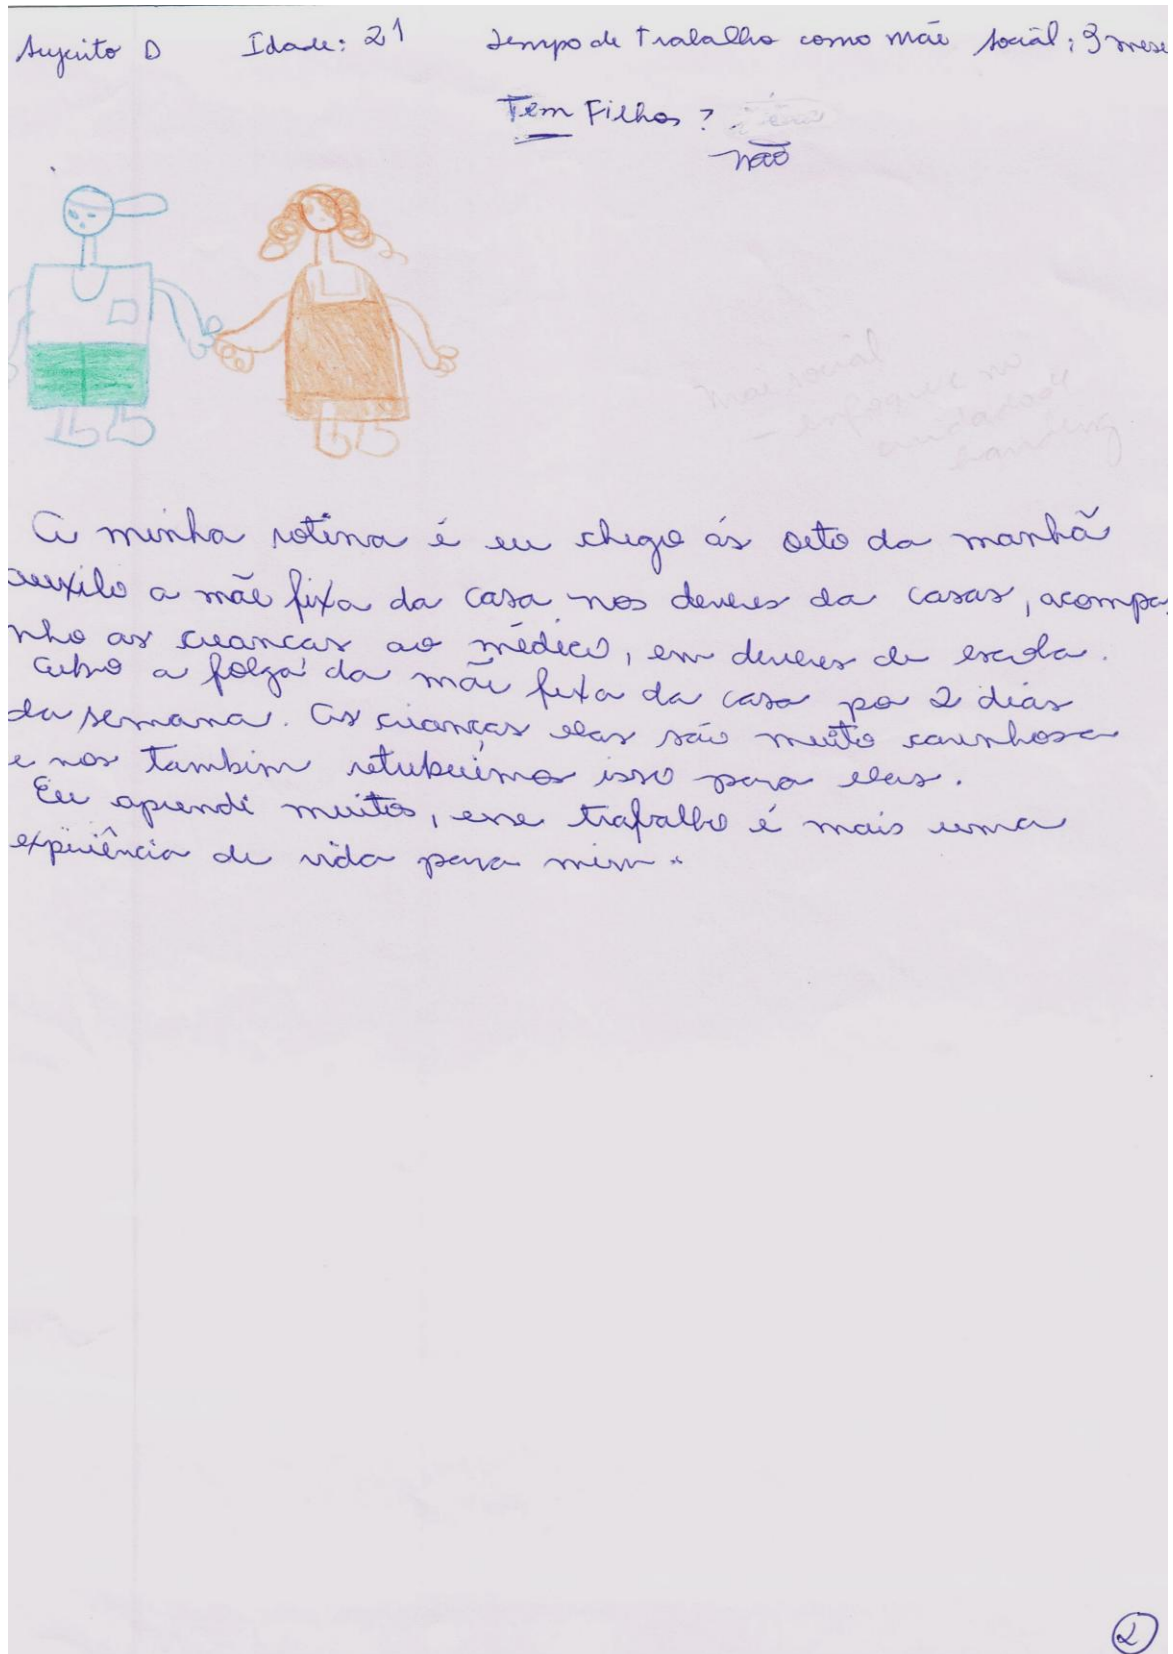 Sujeito D Idade: 21 Tempo de Trabalho como mãe social: 3 mese
Tem Filhos?
não
mãe social
A minha rotina é eu chego ás oito da manhã
auxilo a mãe fixa da casa nos deveres da casas, acompa
nho as criancas ao médico, em deveres de escola.
cubro a folga da mãe fixa da casa po 2 dias
da semana. As crianças elas são muito carinhosa
e nos tambim retribuimos isso para elas.
Eu aprendi muitos, esse trabalho é mais uma
experiência de vida para mim.
2